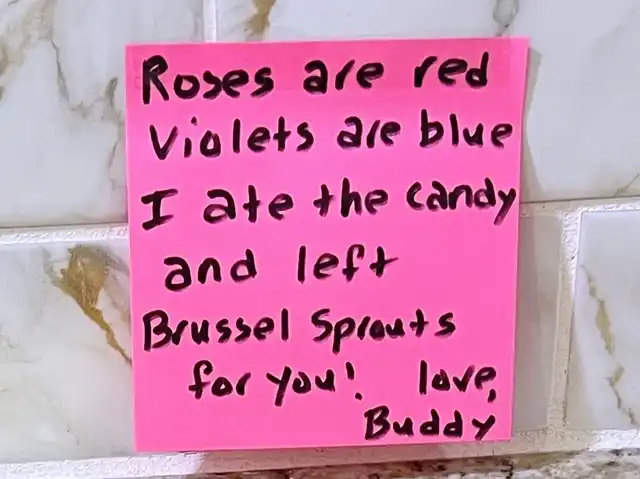 Roses are red
Violets are blue
I ate the candy
and left
Brussel Sprouts
for you! love,
Buddy